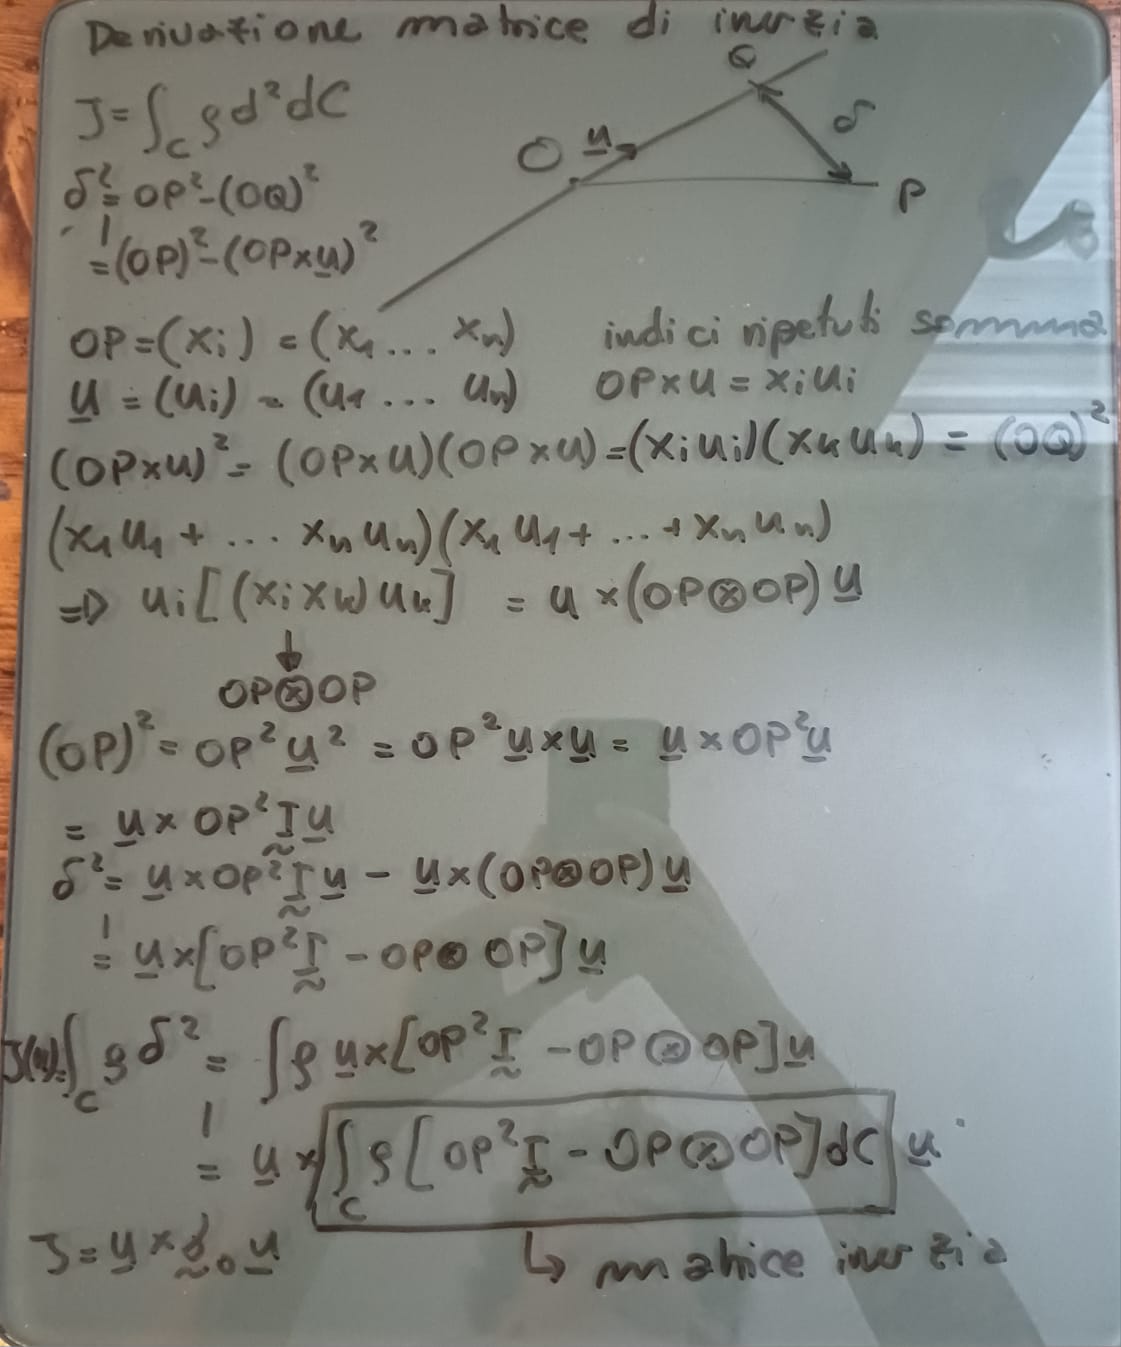 Derivazione matrice di inerzia
J = ∫_C ρ d² dC
δ² = OP² - (OQ)²
= (OP)² - (OP × u)²
O u Q δ P
OP = (xᵢ) = (x₁ ... xₙ) indici ripetuti somma
u = (uᵢ) = (u₁ ... uₙ) OP × u = xᵢuᵢ
(OP × u)² = (OP × u)(OP × u) = (xᵢuᵢ)(xₖuₖ) = (OQ)²
(x₁u₁ + ... xₙuₙ)(x₁u₁ + ... + xₙuₙ)
=> uᵢ[(xᵢxₖ)uₖ] = u × (OP⊗OP) u
↓
OP⊗OP
(OP)² = OP² u² = OP² u × u = u × OP² u
= u × OP² I u
δ² = u × OP² I u - u × (OP⊗OP) u
= u × [OP² I - OP⊗OP] u
J(u) = ∫_C ρ δ² = ∫ ρ u × [OP² I - OP⊗OP] u
= u × ∫_C ρ [OP² I - OP⊗OP] dC u
J = u × J₀ u ↳ matrice inerzia